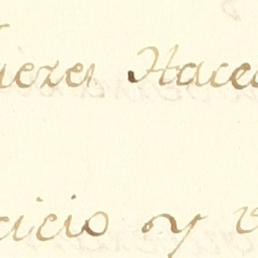 uezes Haced
icio y v